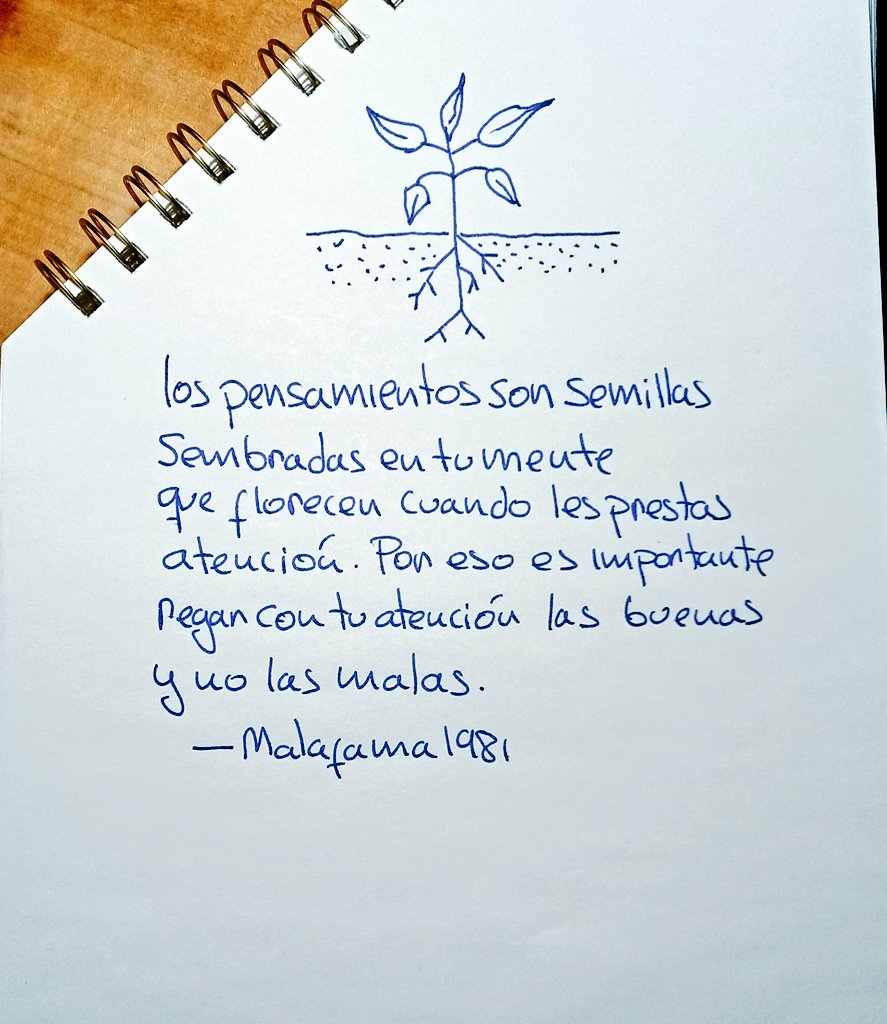 los pensamientos son semillas
sembradas en tu mente
que florecen cuando les prestas
atención. Por eso es importante
regar con tu atención las buenas
y no las malas.
—Malafama1981